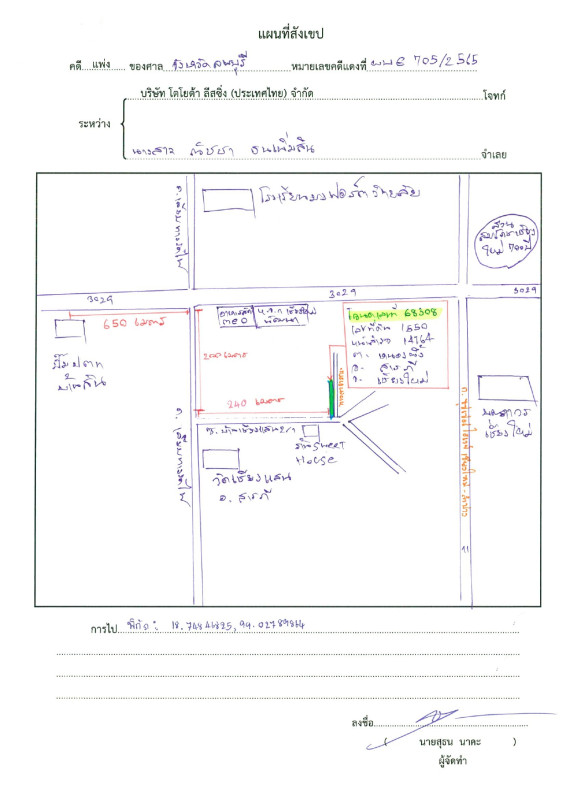 แผนที่สังเขป
คดี แพ่ง ของศาล จังหวัดลพบุรี หมายเลขคดีแดงที่ ผบE 705/2565
บริษัท โตโยต้า ลีสซิ่ง (ประเทศไทย) จำกัด โจทก์
ระหว่าง
นางสาว ณัชชา ธนเพิ่มสิน จำเลย
โรงเรียนมงฟอร์ตวิทยาลัย
3029
3029
3029
650 เมตร
200 เมตร
240 เมตร
โฉนดเลขที่ 68308
เลขที่ดิน 1550
หน้าสำรวจ 14764
ต. หนองผึ้ง
อ. สารภี
จ. เชียงใหม่
ปั๊มปตท
House
วัดเชียงแสน
อ. สารภี
การไป พิกัด :
ลงชื่อ
( นายสุธน นาคะ )
ผู้จัดทำ